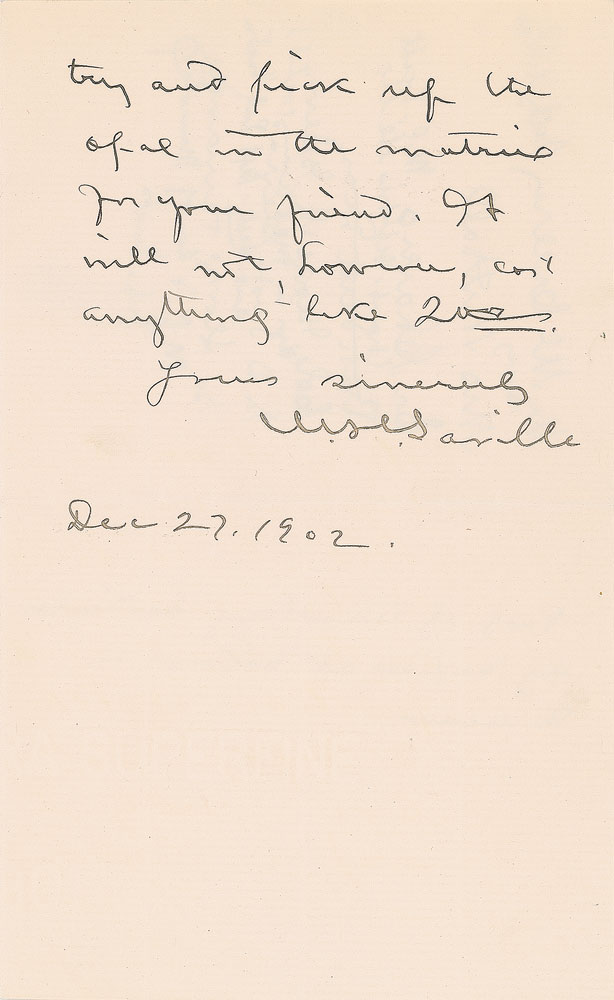 try and pick up the
opal in the matrix
for your friend. It
will not, however, cost
anything like 200.
Yours sincerely
M. H. Saville
Dec 27. 1902.